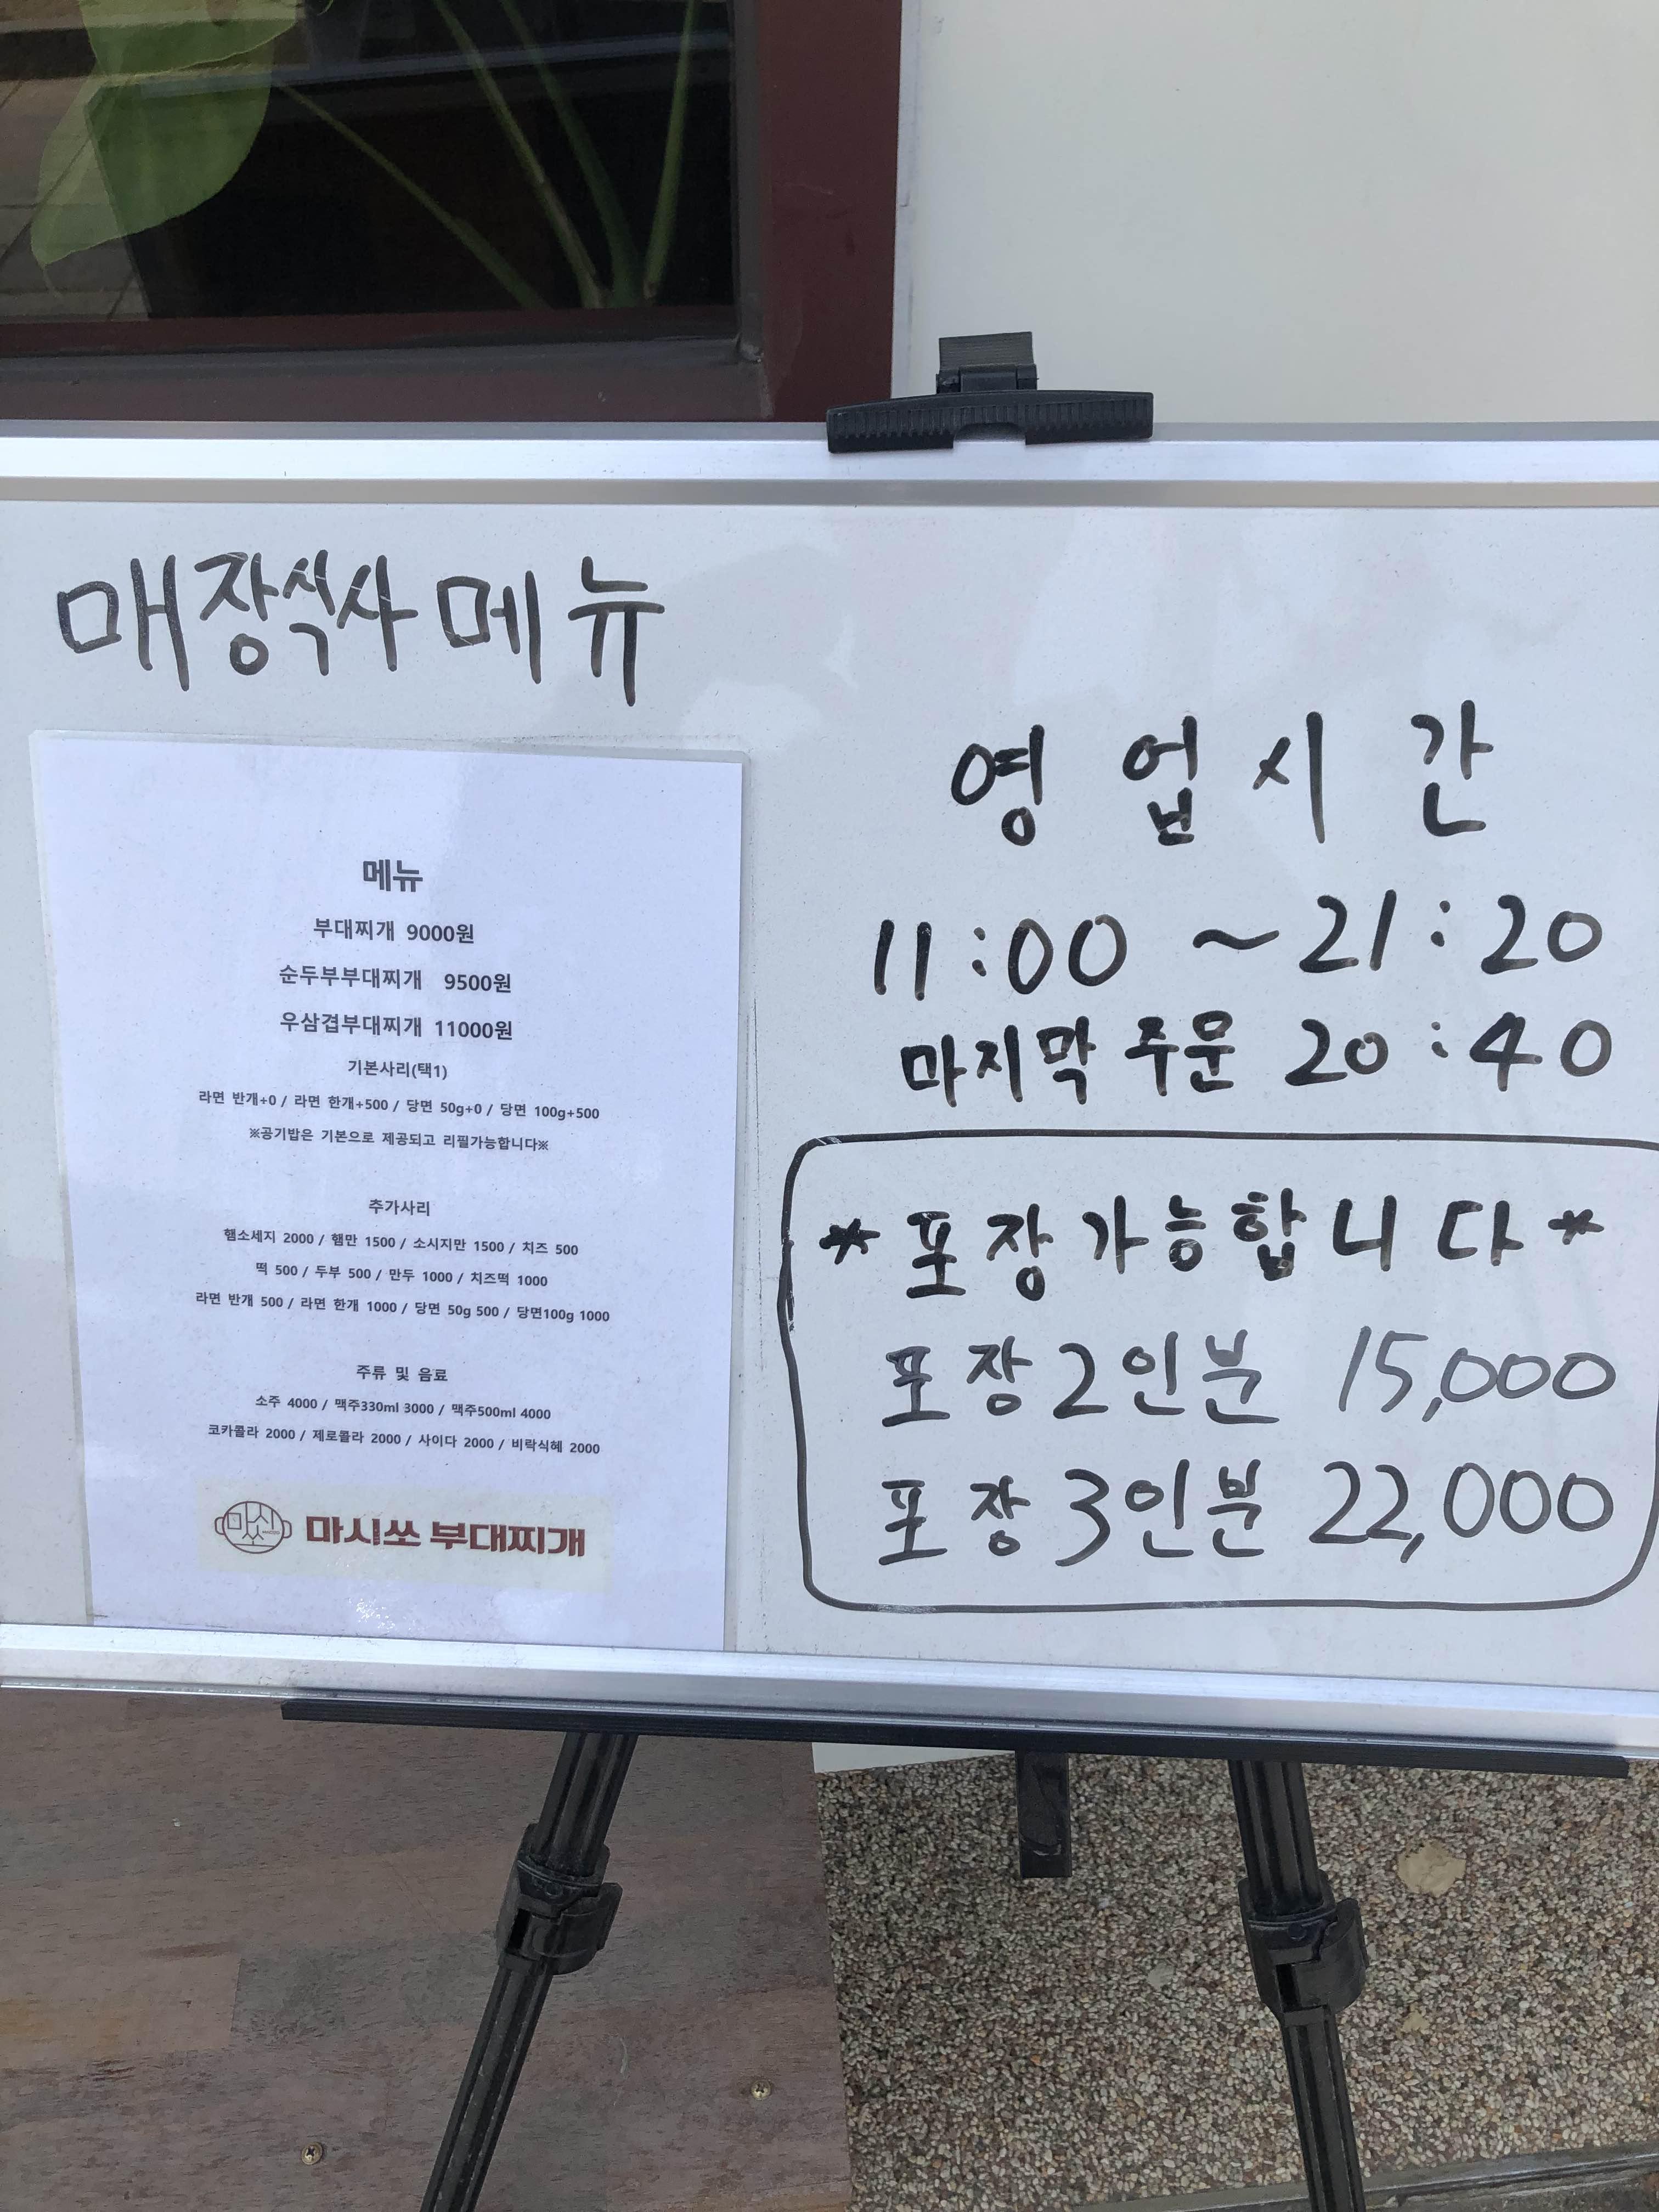 매장식사 메뉴
메뉴
부대찌개 9000원
순두부부대찌개 9500원
우삼겹부대찌개 11000원
기본사리(택1)
라면 반개+0 / 라면 한개+500 / 당면 50g+0 / 당면 100g+500
※공기밥은 기본으로 제공되고 리필가능합니다※
추가사리
햄소세지 2000 / 햄만 1500 / 소시지만 1500 / 치즈 500
떡 500 / 두부 500 / 만두 1000 / 치즈떡 1000
라면 반개 500 / 라면 한개 1000 / 당면 50g 500 / 당면100g 1000
주류 및 음료
소주 4000 / 맥주330ml 3000 / 맥주500ml 4000
코카콜라 2000 / 제로콜라 2000 / 사이다 2000 / 비락식혜 2000
마시쏘
마시쏘 부대찌개
영업시간
11:00 ~ 21:20
마지막 주문 20:40
*포장가능합니다*
포장2인분 15,000
포장3인분 22,000